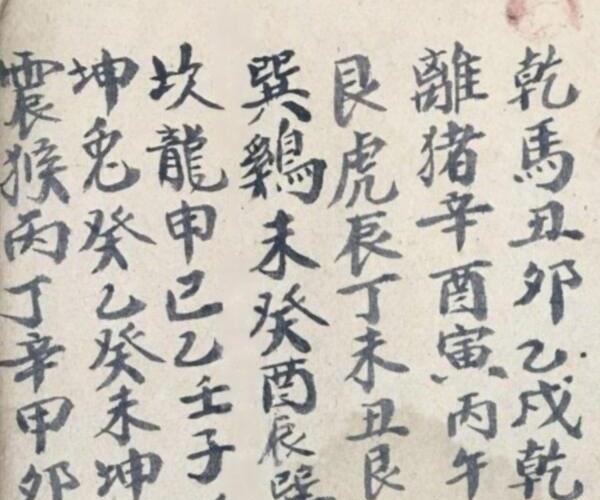 乾馬丑卯乙戌乾
離猪辛酉寅丙午
艮虎辰丁未丑艮
巽鷄未癸酉辰巽
坎龍申巳乙壬子
坤兔癸乙癸未坤
震猴丙丁辛甲卯